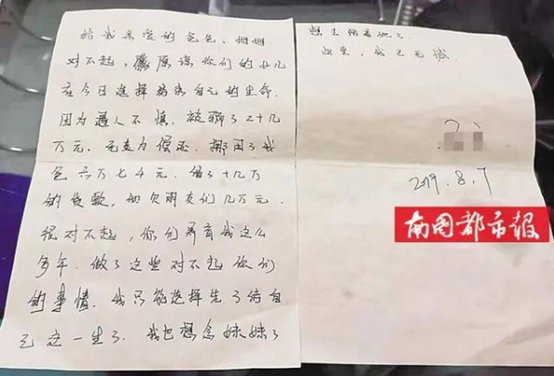 给我亲爱的爸爸，妈妈
对不起，原谅你们的女儿
在今日选择结束自己的生命
因为遇人不慎，被骗了二十几
万元，无能力偿还，挪用了我
爸六万七千元，借了十几万
的贷款，和欠朋友们几万元，
很对不起，你们养育我这么
多年，做了这些对不起你们
的事情，我只能选择先了结自
己这一生了，我也想念妹妹了
想去陪着她了
此生，我已无憾
2019.8.7
南国都市报